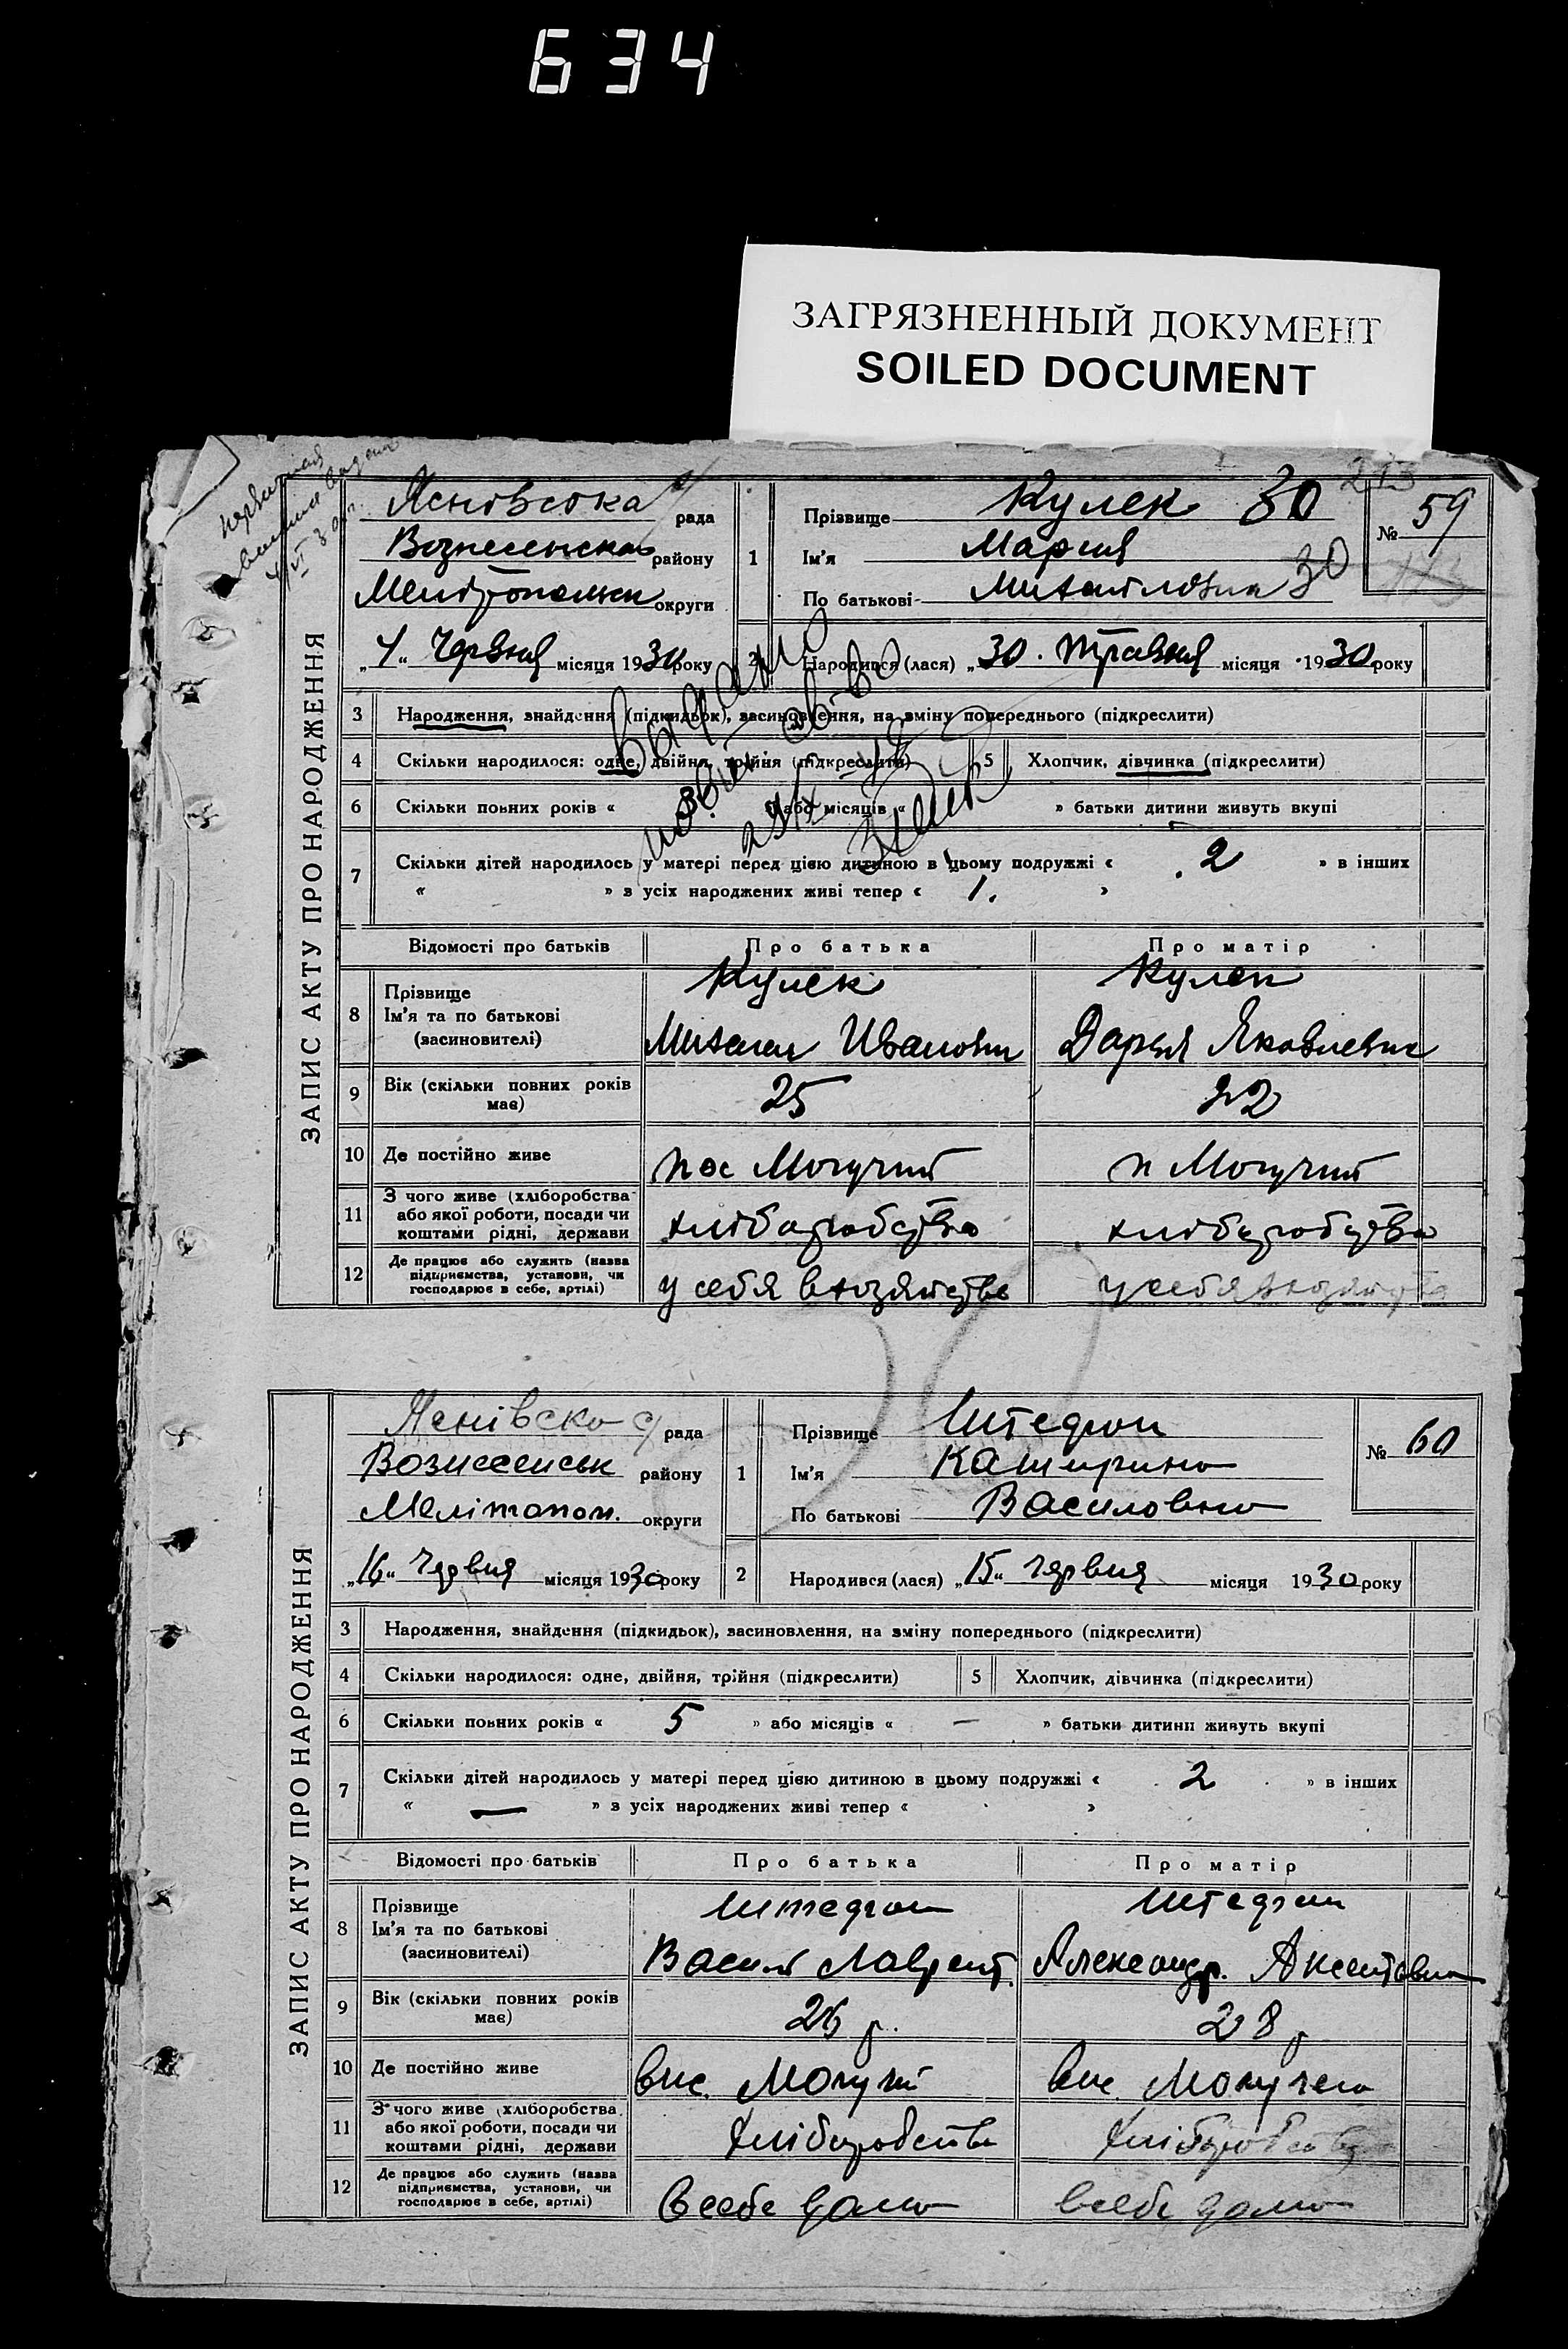 634
ЗАГРЯЗНЕННЫЙ ДОКУМЕНТ
SOILED DOCUMENT
ЗАПИС АКТУ ПРО НАРОДЖЕННЯ
рада
Вознесенська району
округи
"4" Червня місяця 1930 року
1
Прізвище Кулек 30
Ім'я Мария
По батькові Михайловна 30
№ 59
213
2 Народився (лася) "30. Травня місяця 1930 року
3 Народження, знайдення (підкидьок), засиновлення, на зміну попереднього (підкреслити)
4 Скільки народилося: одне, двійня, трійня (підкреслити) 5 Хлопчик, дівчинка (підкреслити)
6 Скільки повних років « » або місяців « » батьки дитини живуть вкупі
7 Скільки дітей народилось у матері перед цією дитиною в цьому подружжі « 2 » в інших
« » з усіх народжених живі тепер « 1. »
Видано
Відомості про батьків Про батька Про матір
8 Прізвище Ім'я та по батькові (засиновителі)
Кулек Кулек
Михаил Иванович Дарья Яковлевна
9 Вік (скільки повних років має) 25 22
10 Де постійно живе пос Могучий п Могучий
11 З чого живе (хліборобства або якої роботи, посади чи коштами рідні, держави хліборобство хліборобство
12 Де працює або служить (назва підприємства, установи, чи господарює в себе, артілі) у себя в хозяйстве у себя в хозяйстве
ЗАПИС АКТУ ПРО НАРОДЖЕННЯ
рада
Вознесенськ району
Мелітопол. округи
"16" Червня місяця 1930 року
1
Прізвище
Ім'я
По батькові Василовна
№ 60
2 Народився (лася) "15" червня місяця 1930 року
3 Народження, знайдення (підкидьок), засиновлення, на зміну попереднього (підкреслити)
4 Скільки народилося: одне, двійня, трійня (підкреслити) 5 Хлопчик, дівчинка (підкреслити)
6 Скільки повних років « 5 » або місяців « — » батьки дитини живуть вкупі
7 Скільки дітей народилось у матері перед цією дитиною в цьому подружжі « 2 » в інших
« — » з усіх народжених живі тепер « »
Відомості про батьків Про батька Про матір
8 Прізвище Ім'я та по батькові (засиновителі)
Васил Лаврент. Александр.
9 Вік (скільки повних років має) 26 р. 28 р
10 Де постійно живе вис. Могучий вис. Могучего
11 З чого живе (хліборобства, або якої роботи, посади чи коштами рідні, держави Хліборобства Хліборобства
12 Де працює або служить (назва підприємства, установи, чи господарює в себе, артілі) в себе дома в себе дома